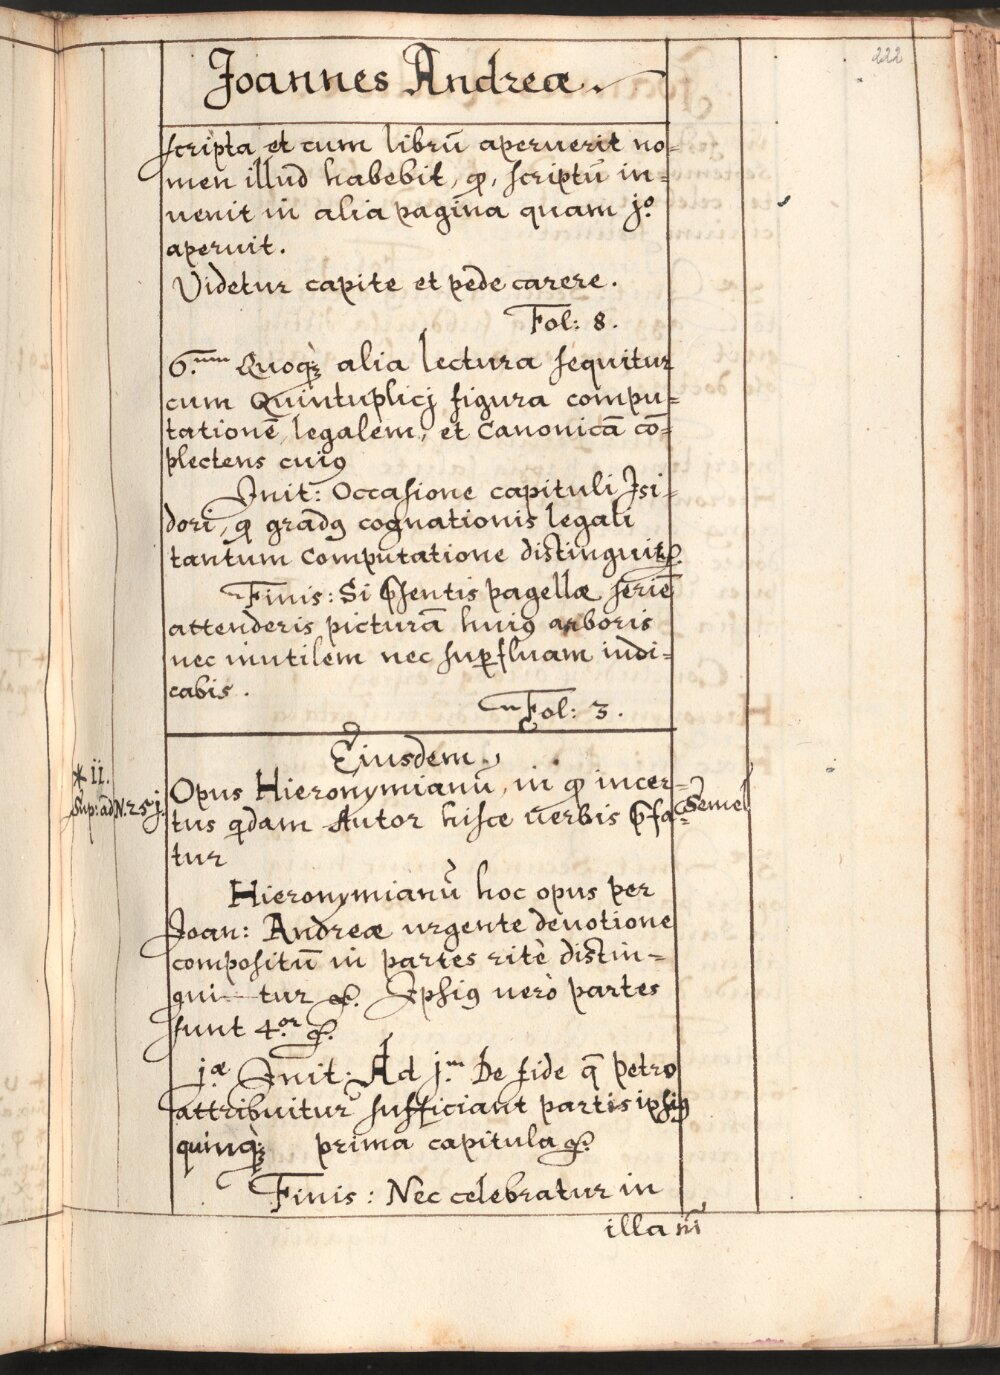 222
Joannes Andreæ.
scripta et cum librū aperuerit no=
men illud habebit, q, scriptū in=
uenit in alia pagina quam j.o
aperuit.
Videtur capite et pede carere.
Fol: 8.
6.um Quoq; alia lectura sequitur
cum Quintuplicj figura compu=
tationē legalem, et Canonicā cō=
plectens cuiꝯ
Init: Occasione capituli Isi=
dori, q gradꝯ cognationis legali
tantum Computatione distinguit
Finis: Si p̄sentis pagellæ seriē
attenderis picturā huiꝯ arboris
nec inutilem nec suꝑfluam indi=
cabis.
Fol: 3.
Eiusdem.
* ii.
Sup: ad N. 25j.
Opus Hieronymianū, in q incer=
tus qdam Autor hisce uerbis p̄fa=
Semel
tur
Hieronymianū hoc opus per
Joan: Andreæ urgente deuotione
compositū in partes ritè distin=
gui--tur &. Ipsiꝯ uerò partes
sunt 4.or &.
j.æ Init: Ad j.m De fide q̄ petro
attribuitur sufficiant partis ipsiꝯ
quinq; prima capitula &.
Finis: Nec celebratur in
illa nī